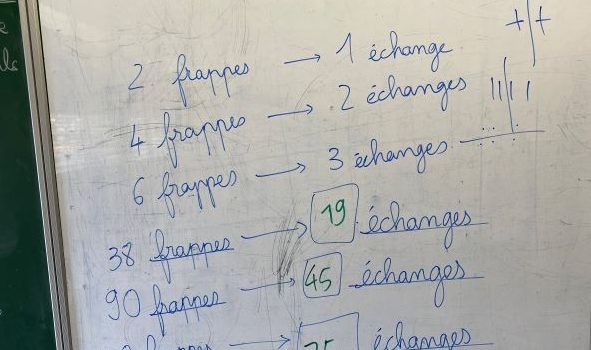 2 frappes → 1 échange
4 frappes → 2 échanges
6 frappes → 3 échanges
38 frappes → 19 échanges
90 frappes → 45 échanges
échanges